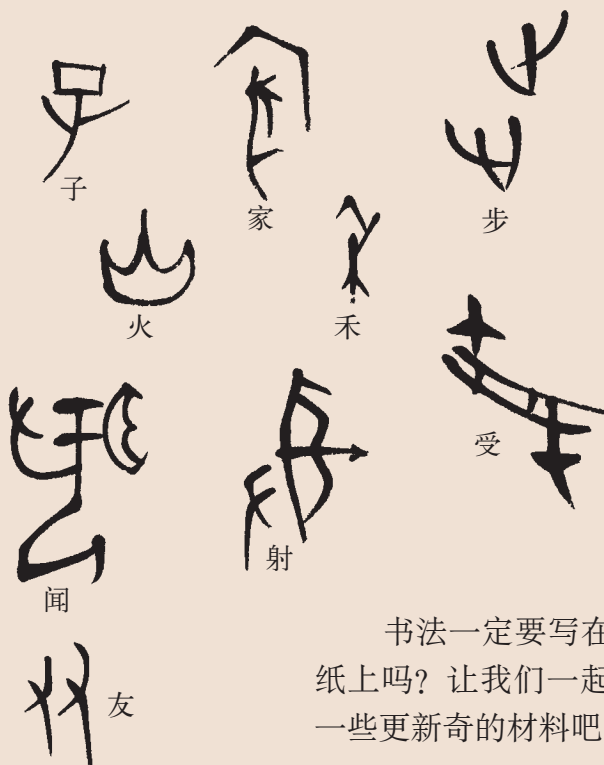 子
家
步
火
禾
受
闻
射
友
书法一定要写在
纸上吗？让我们一起
一些更新奇的材料吧